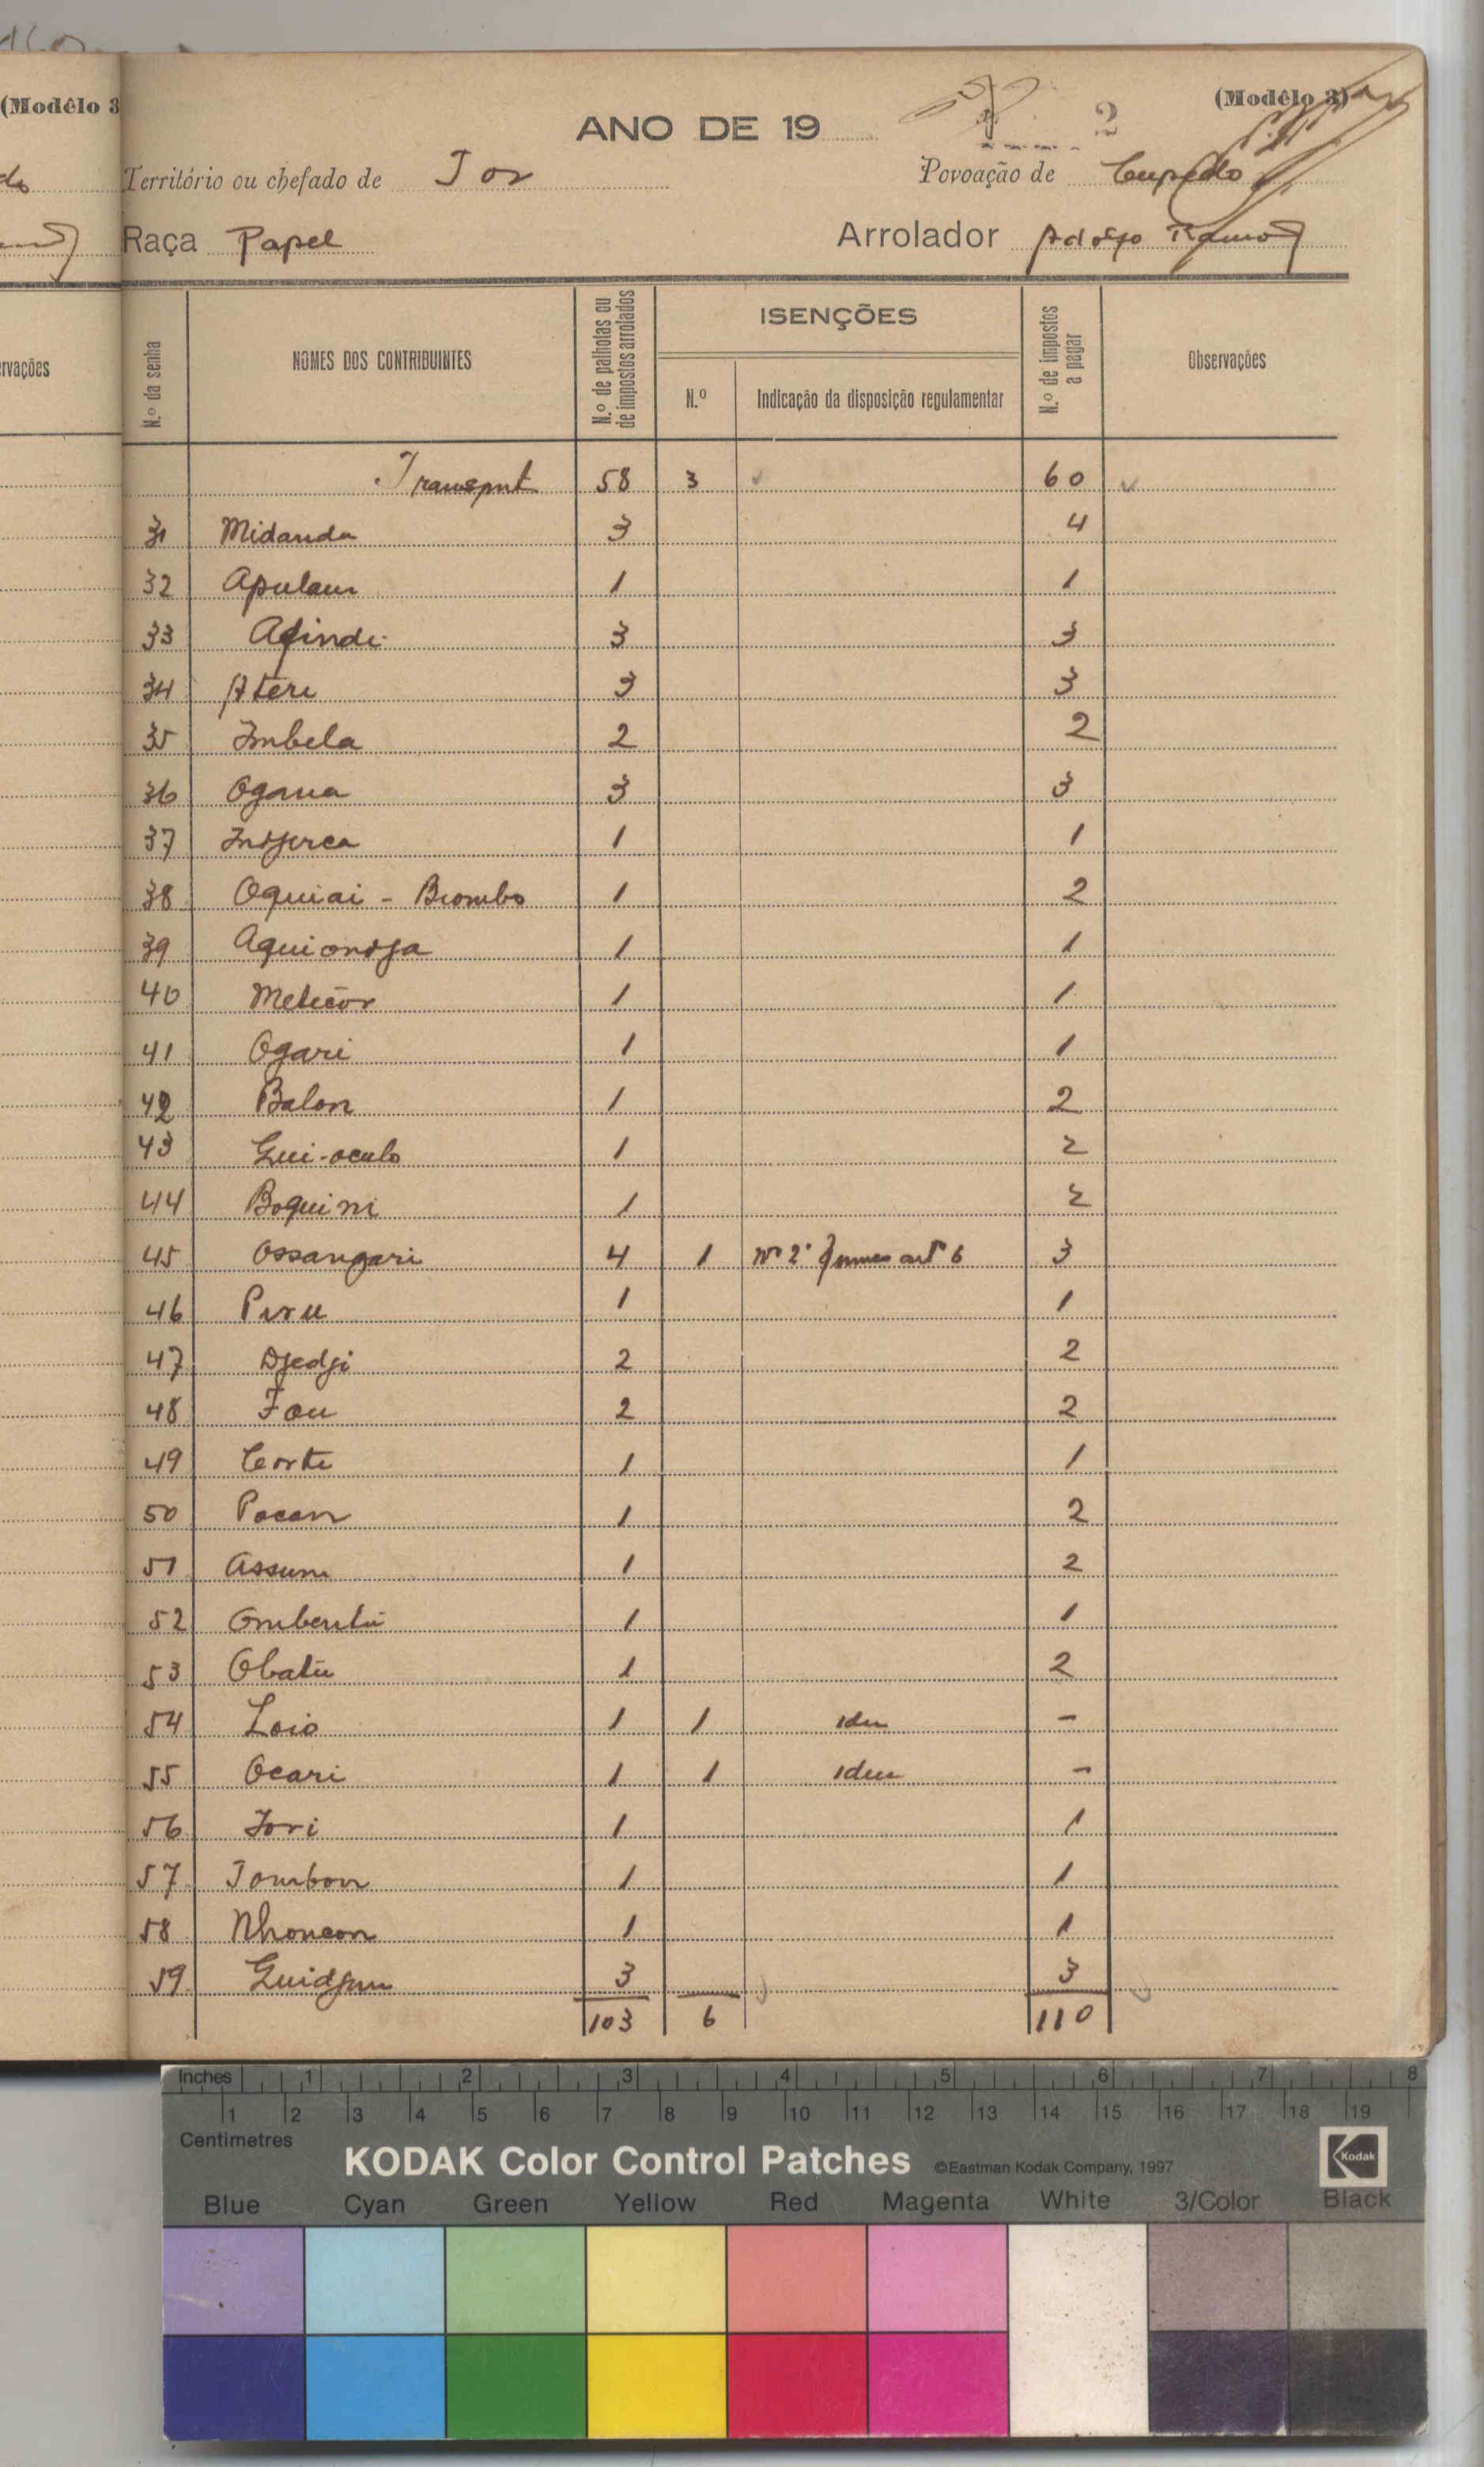 (Modêlo 3
(Modêlo 3)
ANO DE 19
2
Território ou chefado de Tor
Povoação de Cupedo
Raça Papel
Arrolador Adolfo Ramos
rvações
N.º da senha
NOMES DOS CONTRIBUINTES
N.º de palhotas ou de impostos arrolados
ISENÇÕES
N.º
Indicação da disposição regulamentar
N.º de impostos a pagar
Observações
Transport 58 3 60
31 Midanda 3 4
32 Apulam 1 1
33 Afinde 3 3
34 Atere 3 3
35 Imbela 2 2
36 Ogana 3 3
37 Indjerca 1 1
38 Oquiai - Biombo 1 2
39 Aquiondja 1 1
40 Metecor 1 1
41 Ogari 1 1
42 Balon 1 2
43 Gui-oculo 1 2
44 Boquini 1 2
45 Ossangari 4 1 Nº 2º art 6 3
46 Piru 1 1
47 Djedji 2 2
48 Fou 2 2
49 Corte 1 1
50 Pocan 1 2
51 Assum 1 2
52 Ombentú 1 1
53 Obatú 1 2
54 Loio 1 1 idem -
55 Ocari 1 1 idem -
56 Jori 1 1
57 Tombon 1 1
58 Nhoncon 1 1
59 Guidjun 3 3
103 6 110
Inches 1 2 3 4 5 6 7 8
1 2 3 4 5 6 7 8 9 10 11 12 13 14 15 16 17 18 19
Centimetres
KODAK Color Control Patches ©Eastman Kodak Company, 1997 Kodak
Blue Cyan Green Yellow Red Magenta White 3/Color Black